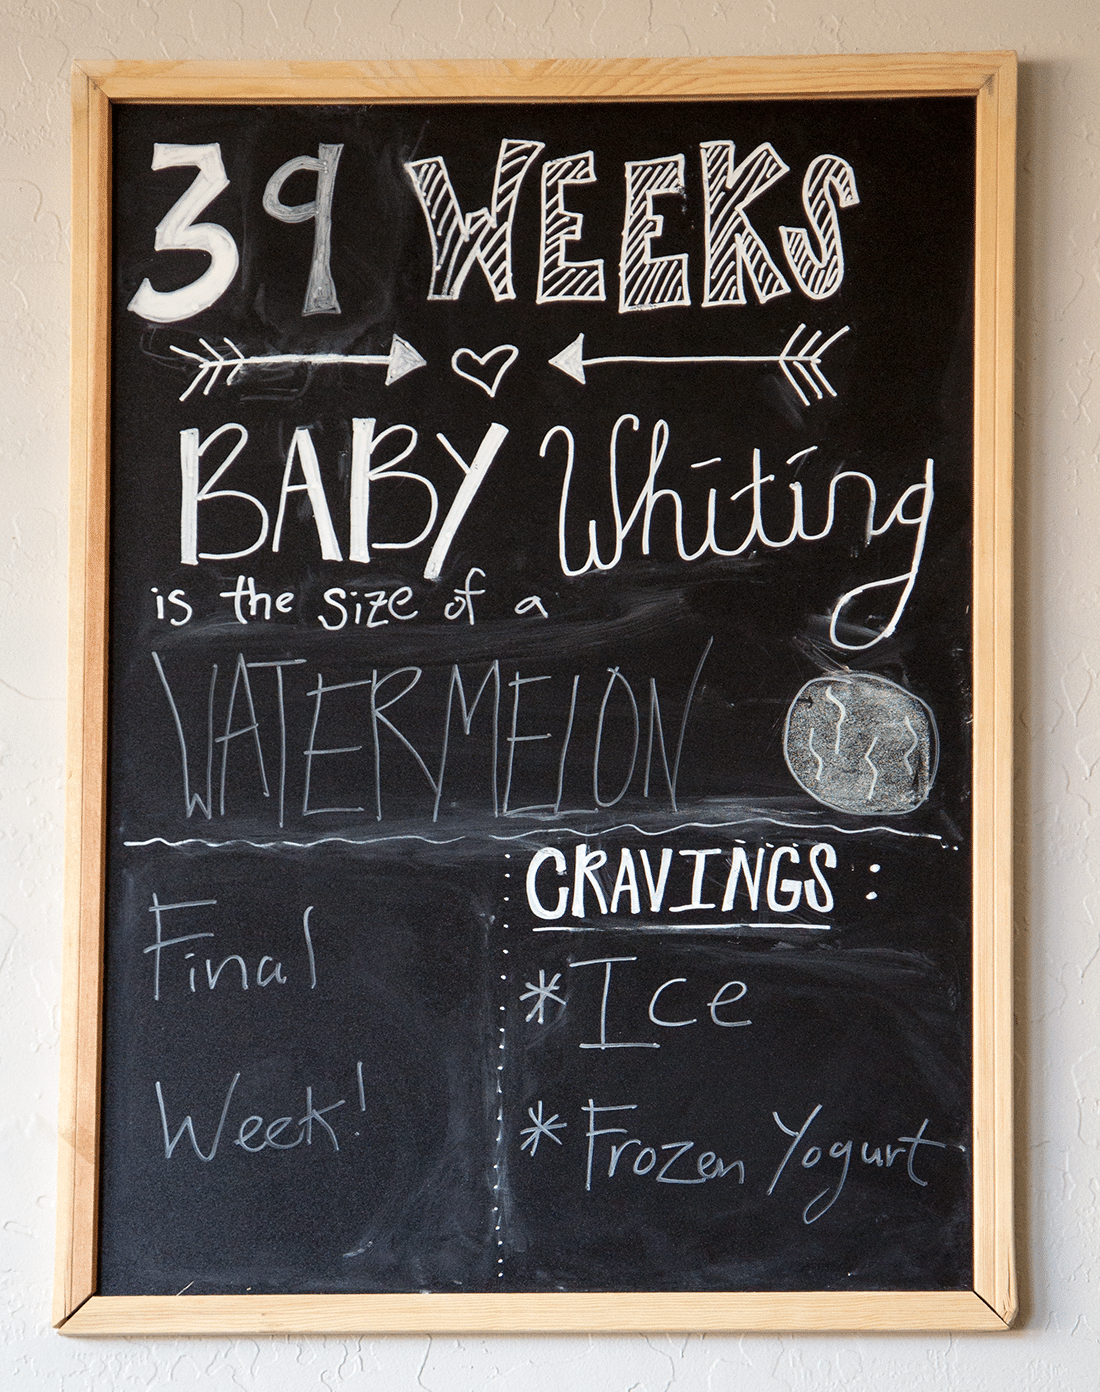 39 WEEKS
BABY Whiting
is the size of a
WATERMELON
Final
Week!
CRAVINGS :
* Ice
* Frozen Yogurt